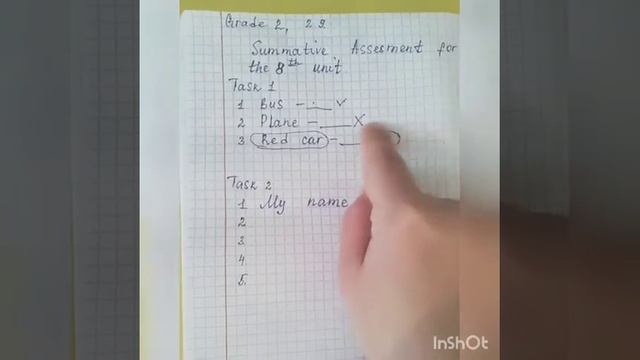 Grade 2, 29.
Summative Assesment for
the 8th unit
Task 1
1 Bus - .__ ✓
2 Plane - ___ X
3 Red car - ___
Task 2
1 My name
2
3.
4.
5.
InShOt